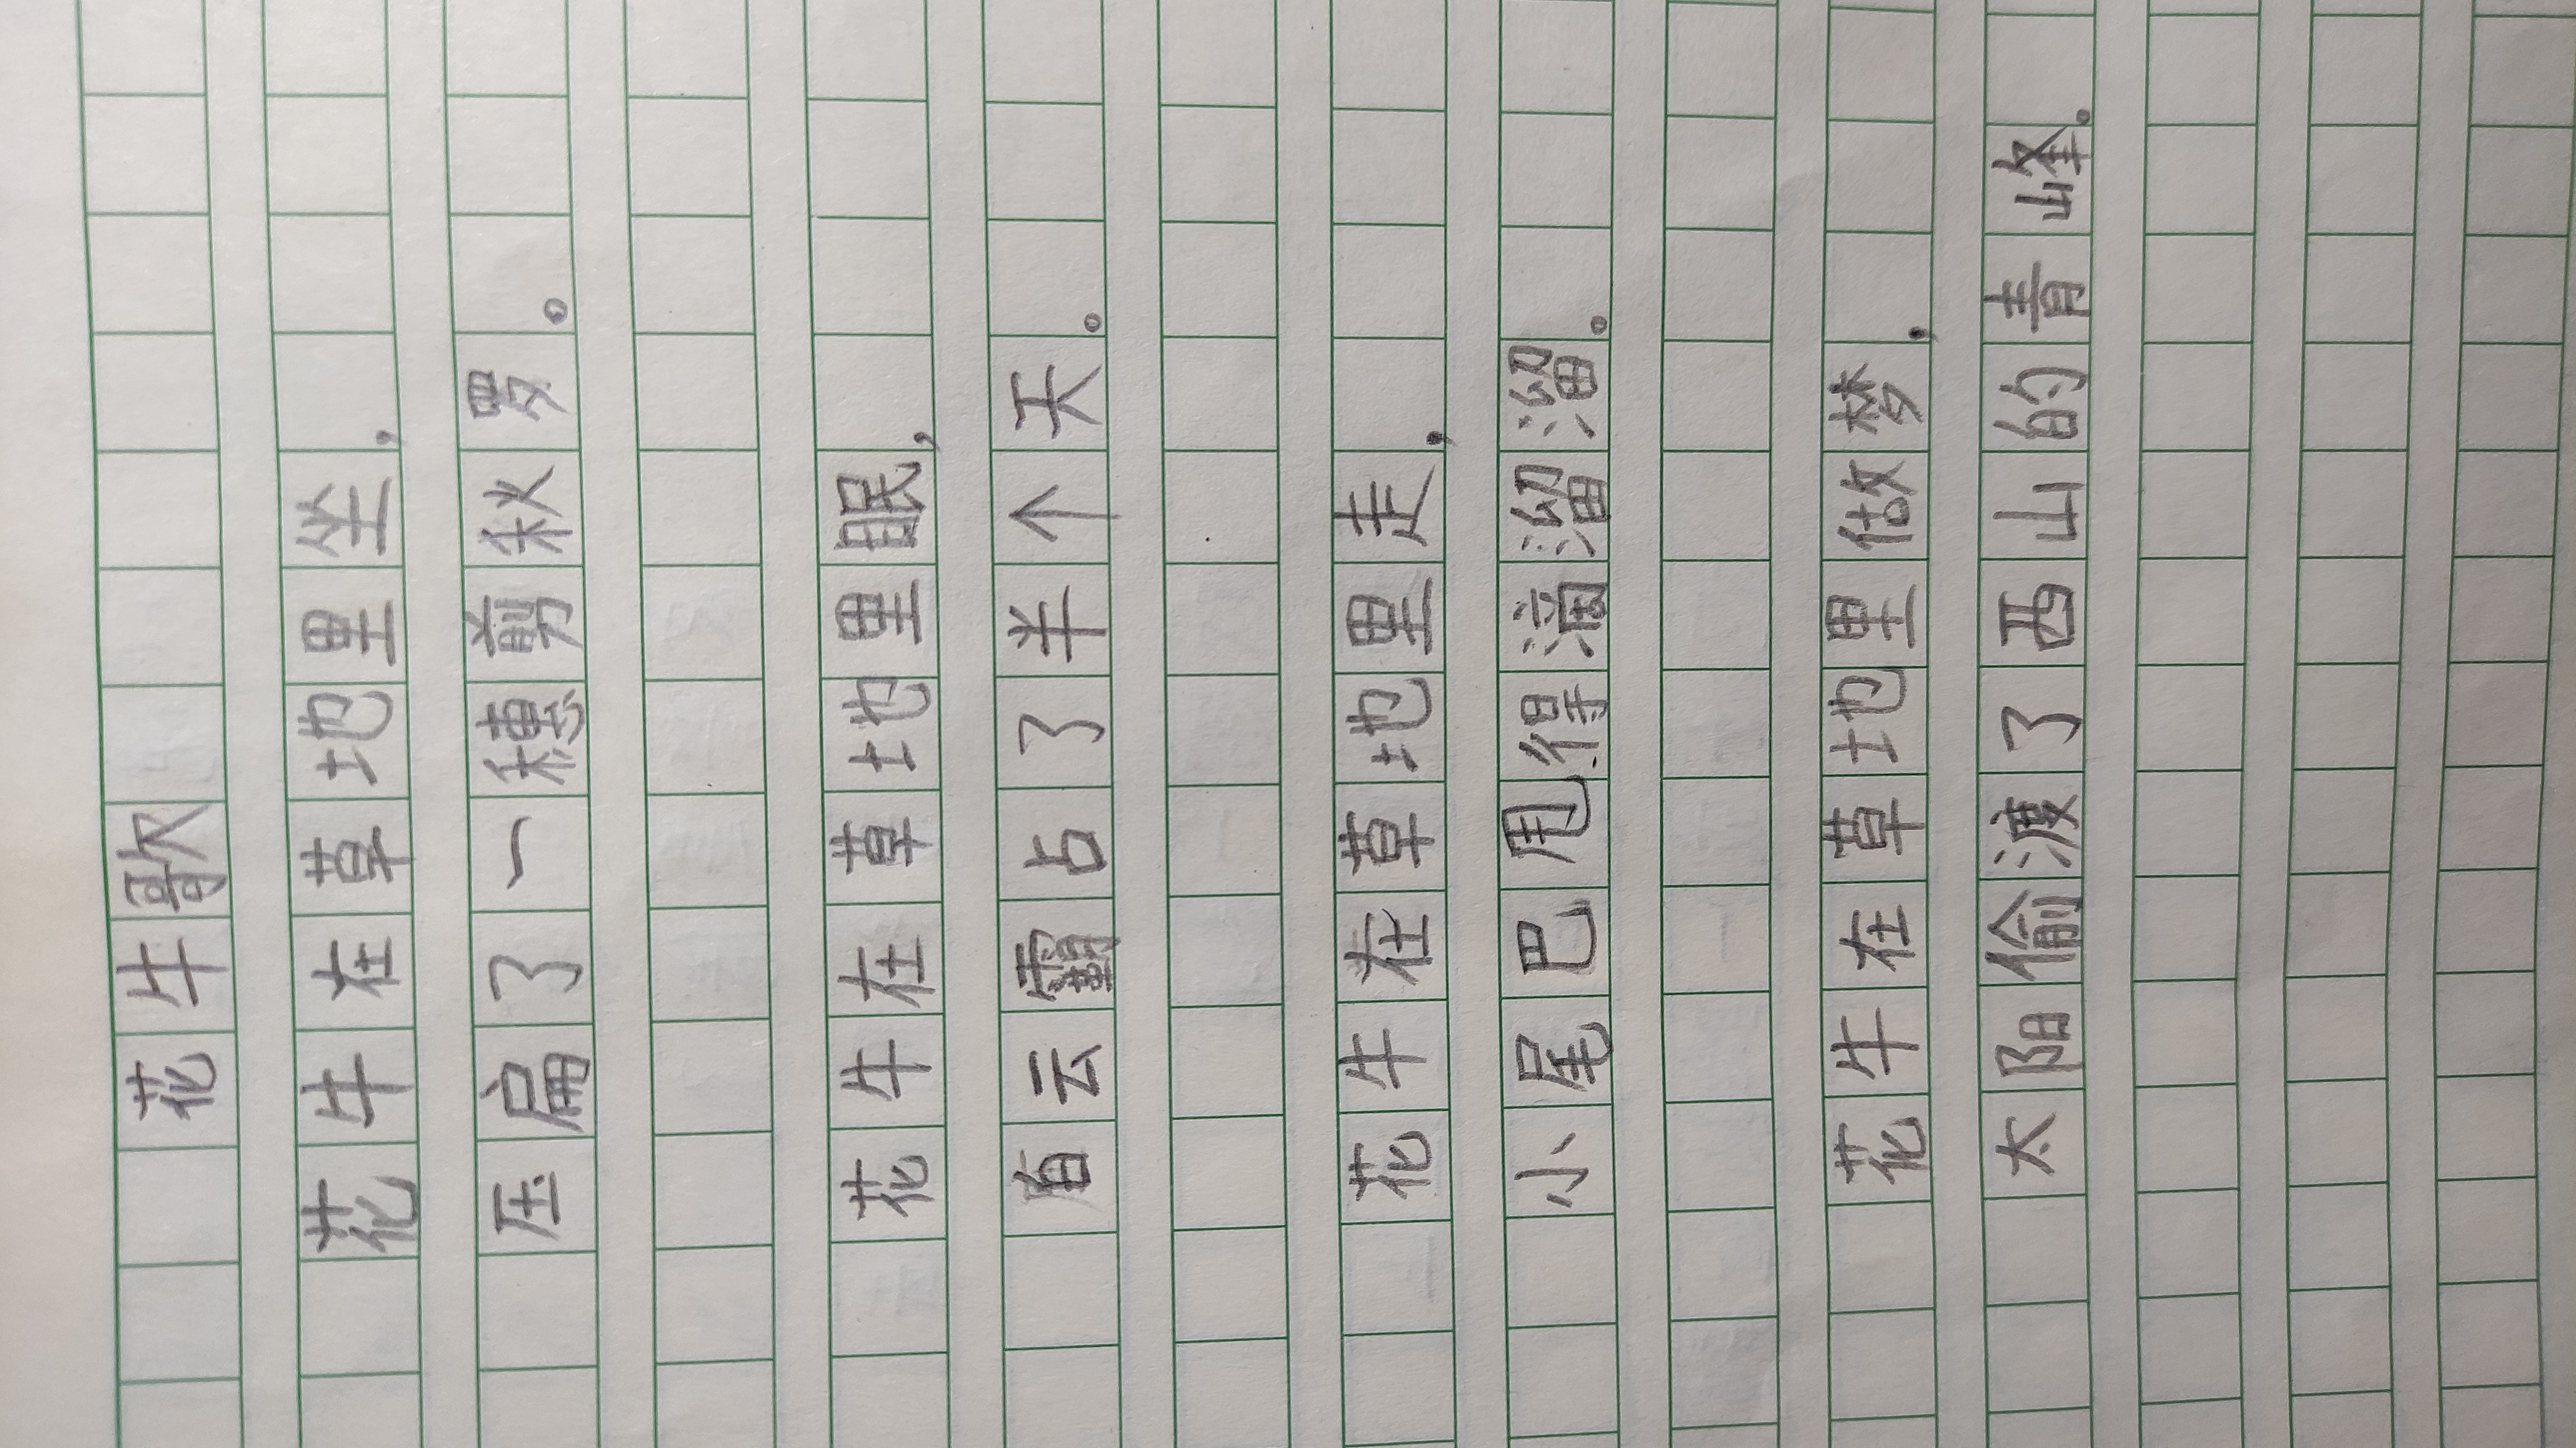 花牛歌
花牛在草地里坐，
压扁了一穗剪秋罗。
花牛在草地里眠，
白云霸占了半个天。
花牛在草地里走，
小尾巴甩得滴溜溜。
花牛在草地里做梦，
太阳偷渡了西山的青峰。